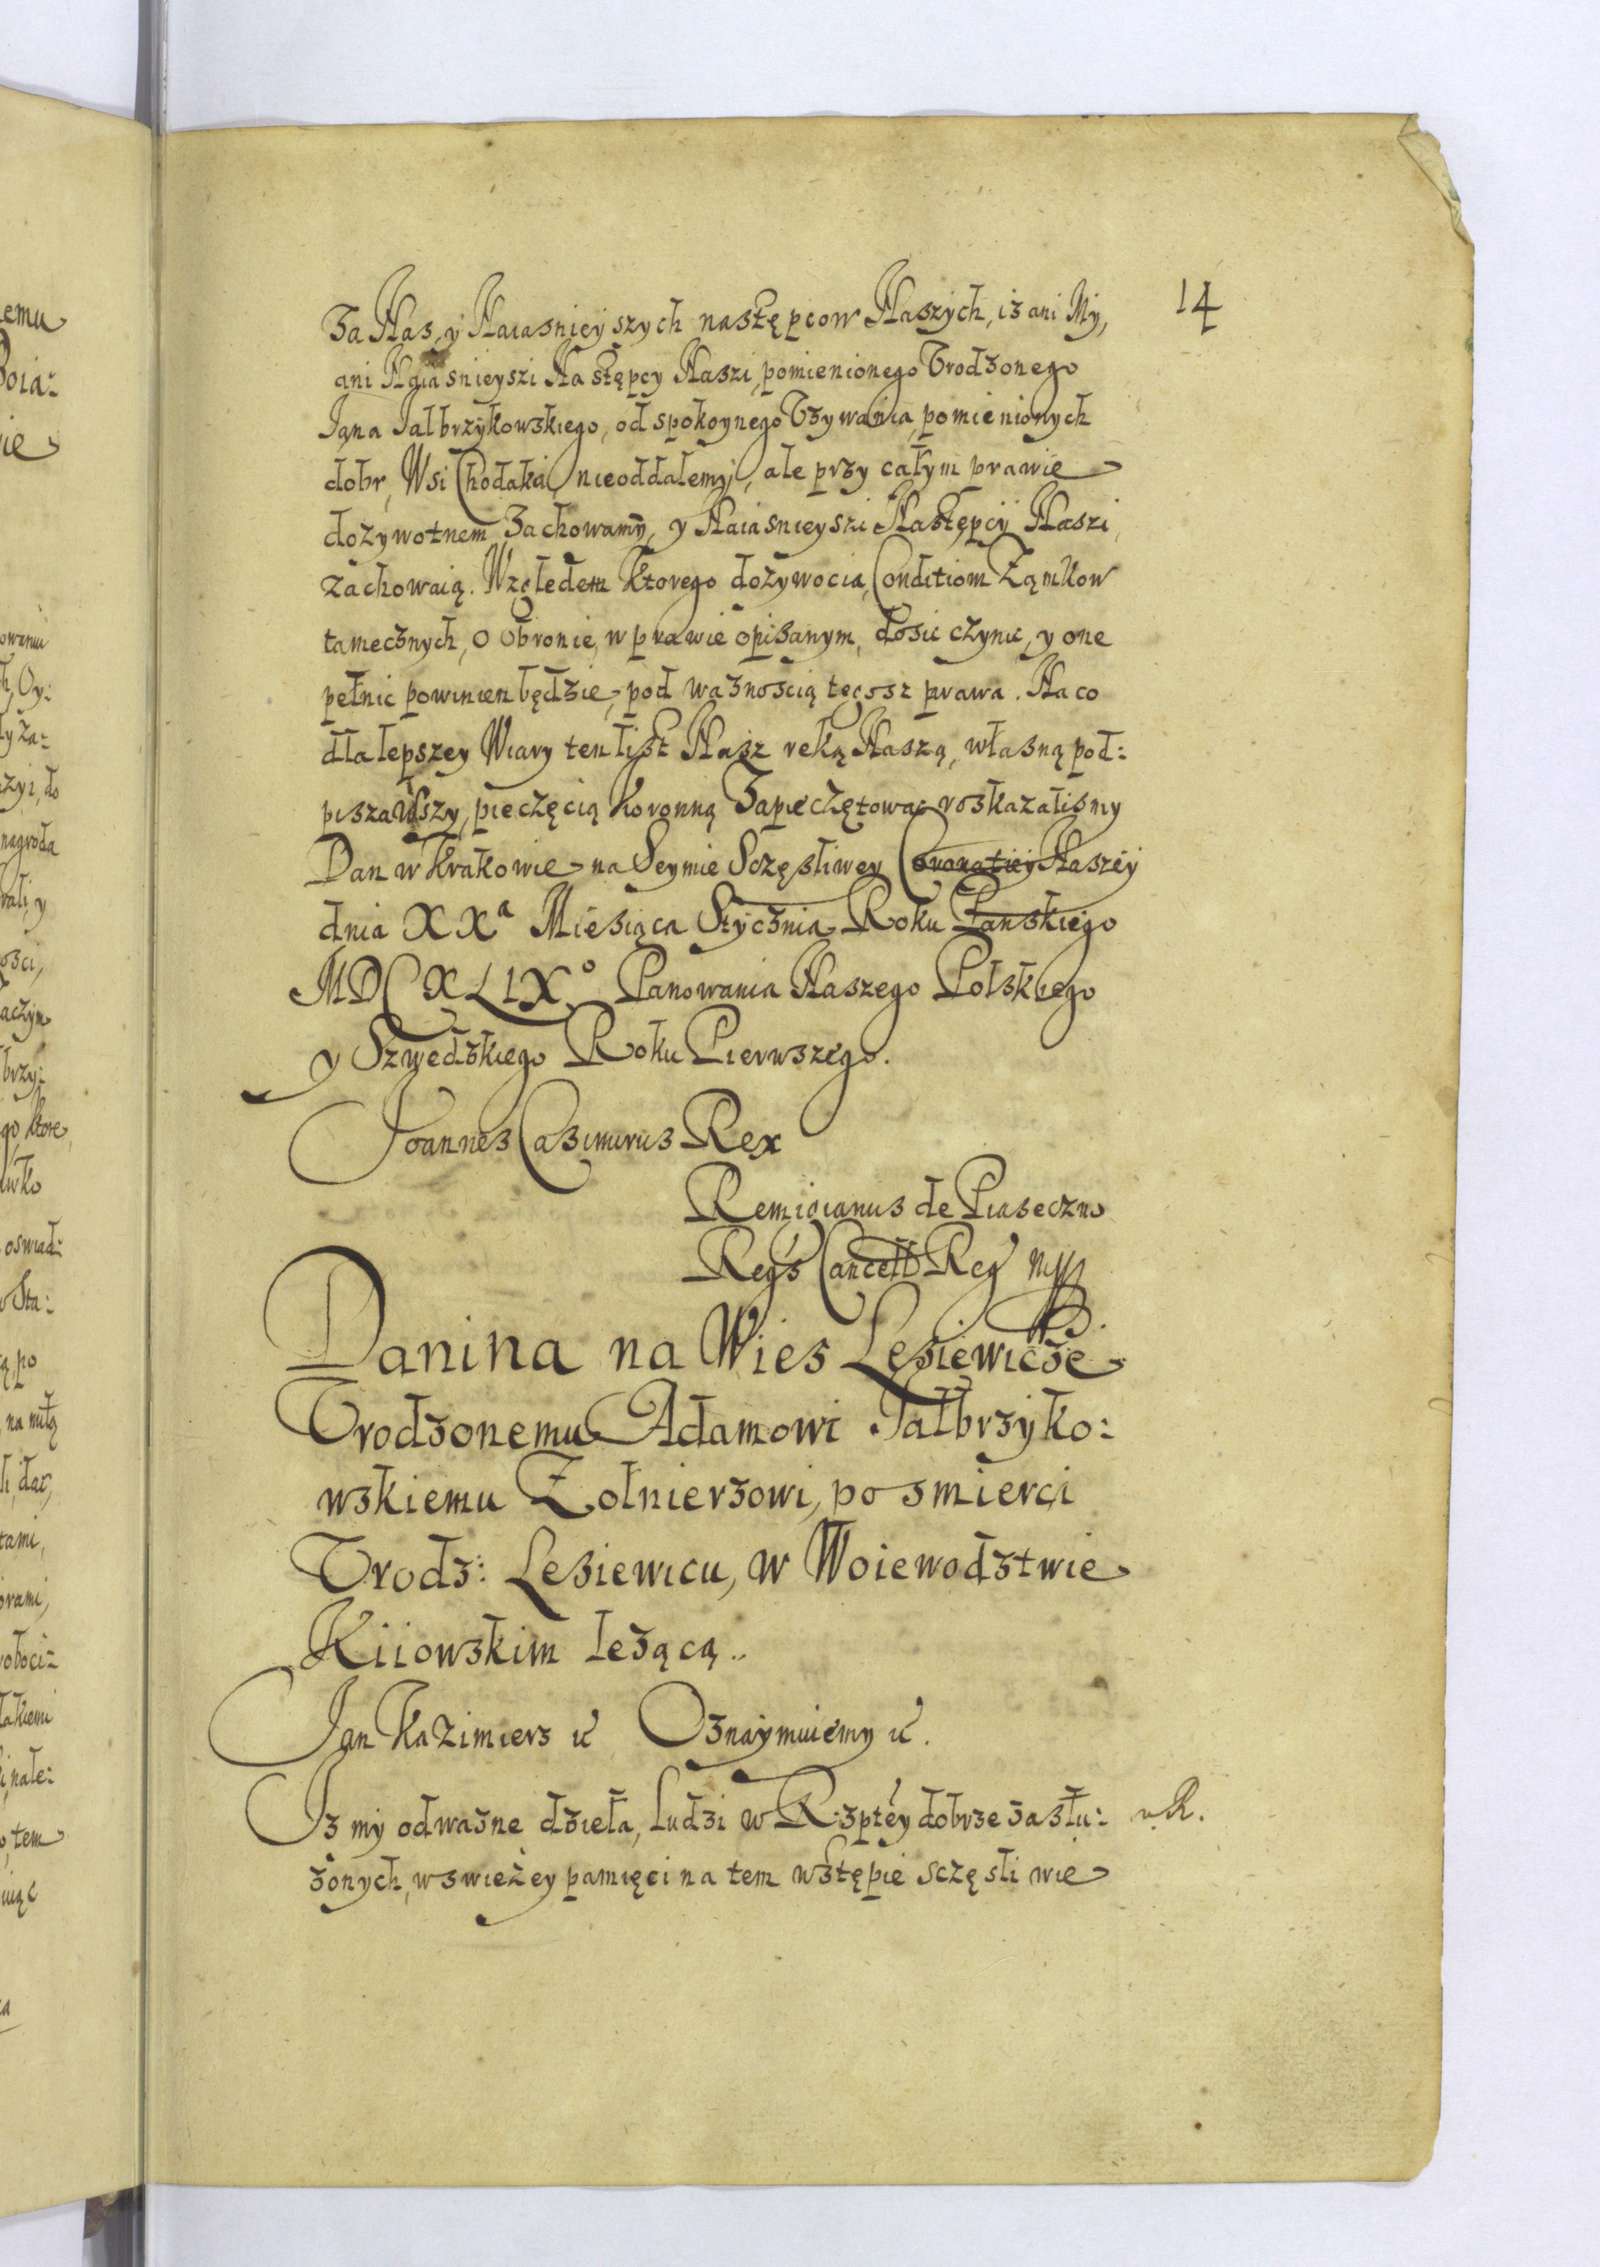 14
Za Nas, y Naiasnieyszych nastę pcow Naszych, iz ani My,
ani Naiasnieyszi Następcy Naszi, pomienionego Vrodzonego
Jana Jałbrzykowskiego, od spokoynego Vzywania, pomienionych
dobr, Wsi Chodaki, nieoddalemy, ale przy całym prawie
dozywotnem Zachowamy, y Naiasnieyszi Następcy Naszi,
zachowaią. Względem ktorego dożywocia, Conditiom Zamkow
tamecznych, o Obronie, w prawie opisanym, dosic czynic, y one
pełnic powinien będzie, pod waznoscią tegosz prawa. Na co
dla lepszey Wiary ten list Nasz ręką Naszą, własną pod:
piszawszy, pieczęcią Koronną Zapieczętowac roskazalismy
Dan w Krakowie na Seymie Sczęsliwey Coronatiey Naszey
dnia XXa Miesiąca Stycznia Roku Panskiego
MDCXLIXo Panowania Naszego Polskiego
y Szwedskiego Roku Pierwszego.
Joannes Casimirus Rex
Remigianus de Piaseczno
Danina na Wies Lesiewicze
Vrodzonemu Adamowi Jałbrzyko:
wskiemu Zołnierzowi, po smierci
Vrodz: Lesiewicu, w Woiewodztwie
Kiiowskim lezącą..
Jan Kazimierz Oznaymuiemy
Iz my odwazne dzieła, ludzi w R: zptey dobrze zasłu:
R.
zonych, w swieżey pamięci na tem wstępie sczęsliwie